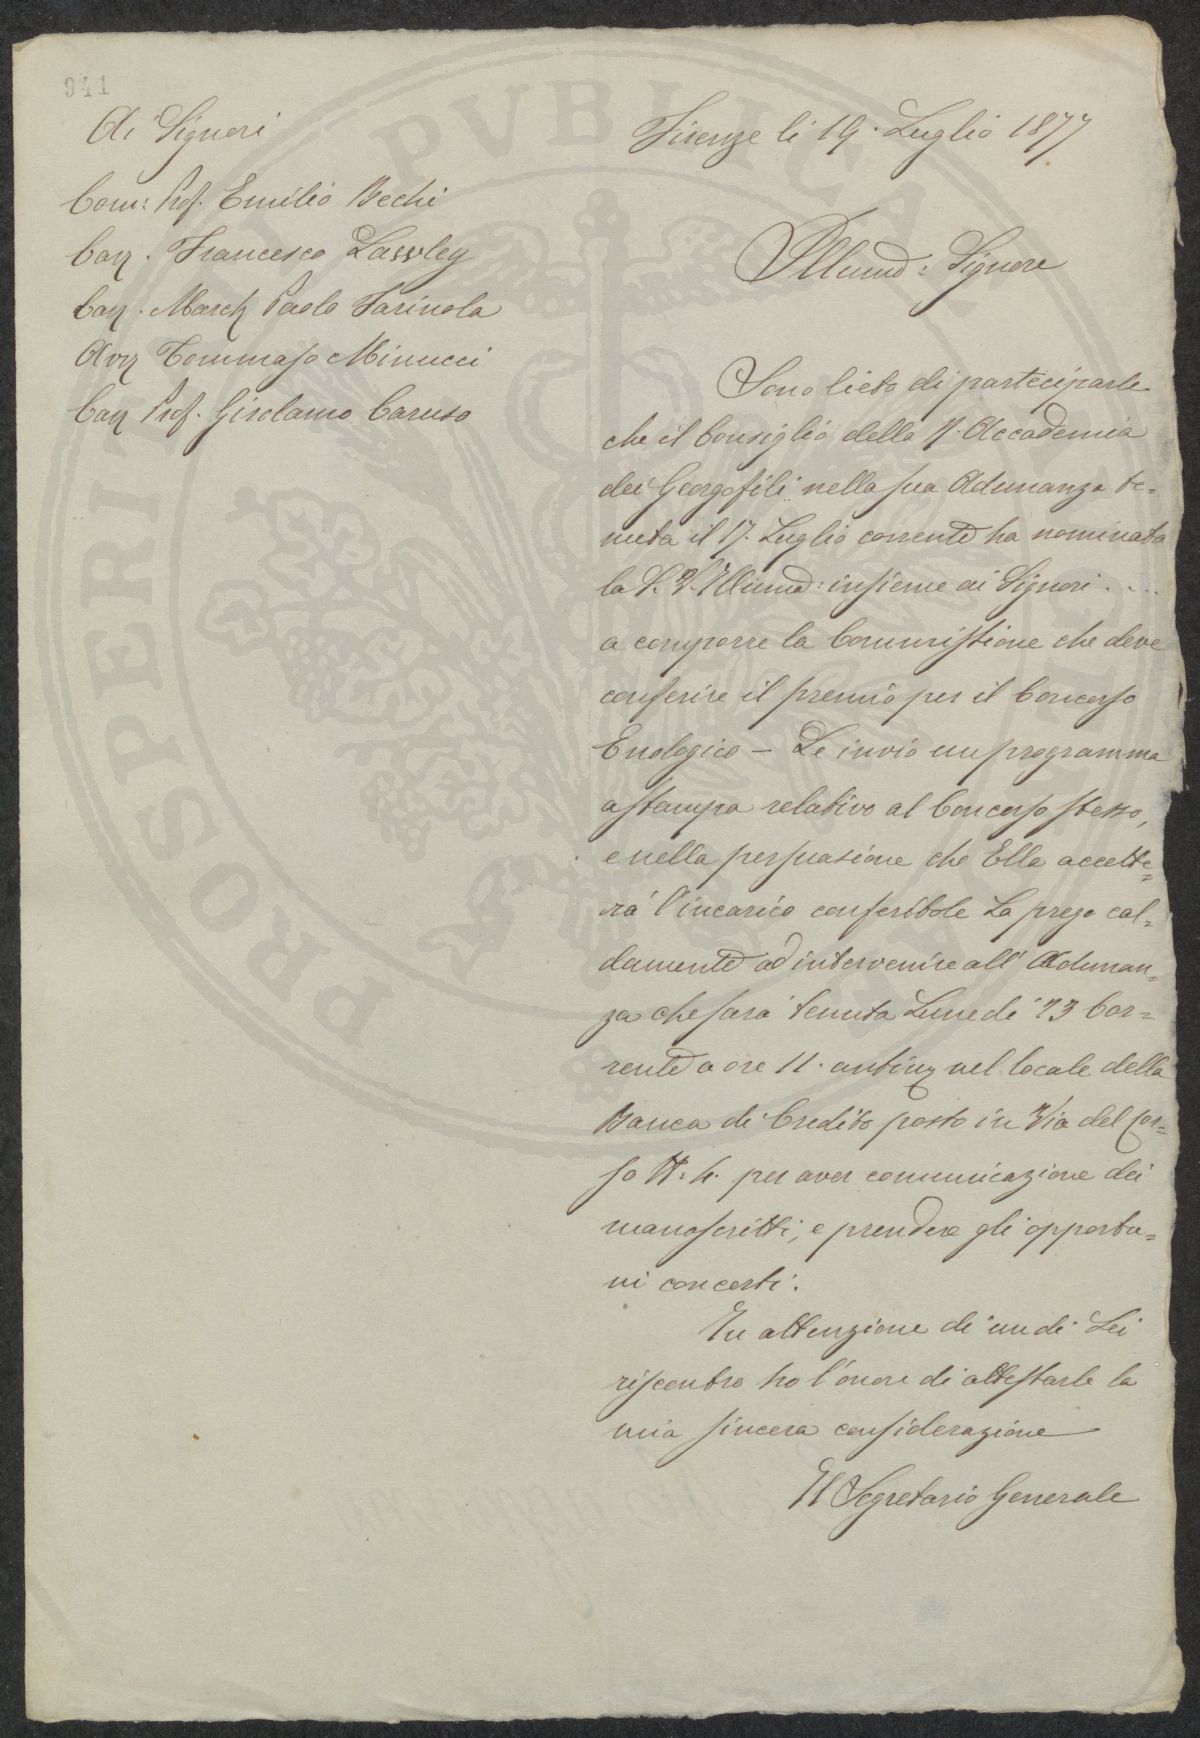 941
Ai Signori
Com: Prof. Emilio Bechi
Cav. Francesco Lawley
Cav. March Paolo Farinola
Avv Tommaso Minucci
Cav Prof. Girolamo Caruso
Firenze li 19. Luglio 1877
Illumo: Signore
Sono lieto di parteciparle
che il Consiglio della R. Accademia
dei Georgofili nella sua Adunanza te=
nuta il 17. Luglio corrente ha nominata
la S. V. Illuma: insieme ai Signori....
a comporre la Commissione che deve
conferire il premio per il Concorso
Enologico – Le invio un programma
a stampa relativo al Concorso stesso,
e nella persuasione che Ella accette=
rà l'incarico conferitole La prego cal=
damente ad intervenire all'Adunan=
za che sarà tenuta Lunedì 23 Cor=
rente a ore 11. antim nel locale della
Banca di Credito posto in Via del Cor=
so N. 4. per aver comunicazione dei
manoscritti, e prendere gli opportu=
ni concerti.
In attenzione di un di Lei
riscontro ho l'onore di attestarle la
mia sincera considerazione
Il Segretario Generale
PROSPERITATI PVBLICAE